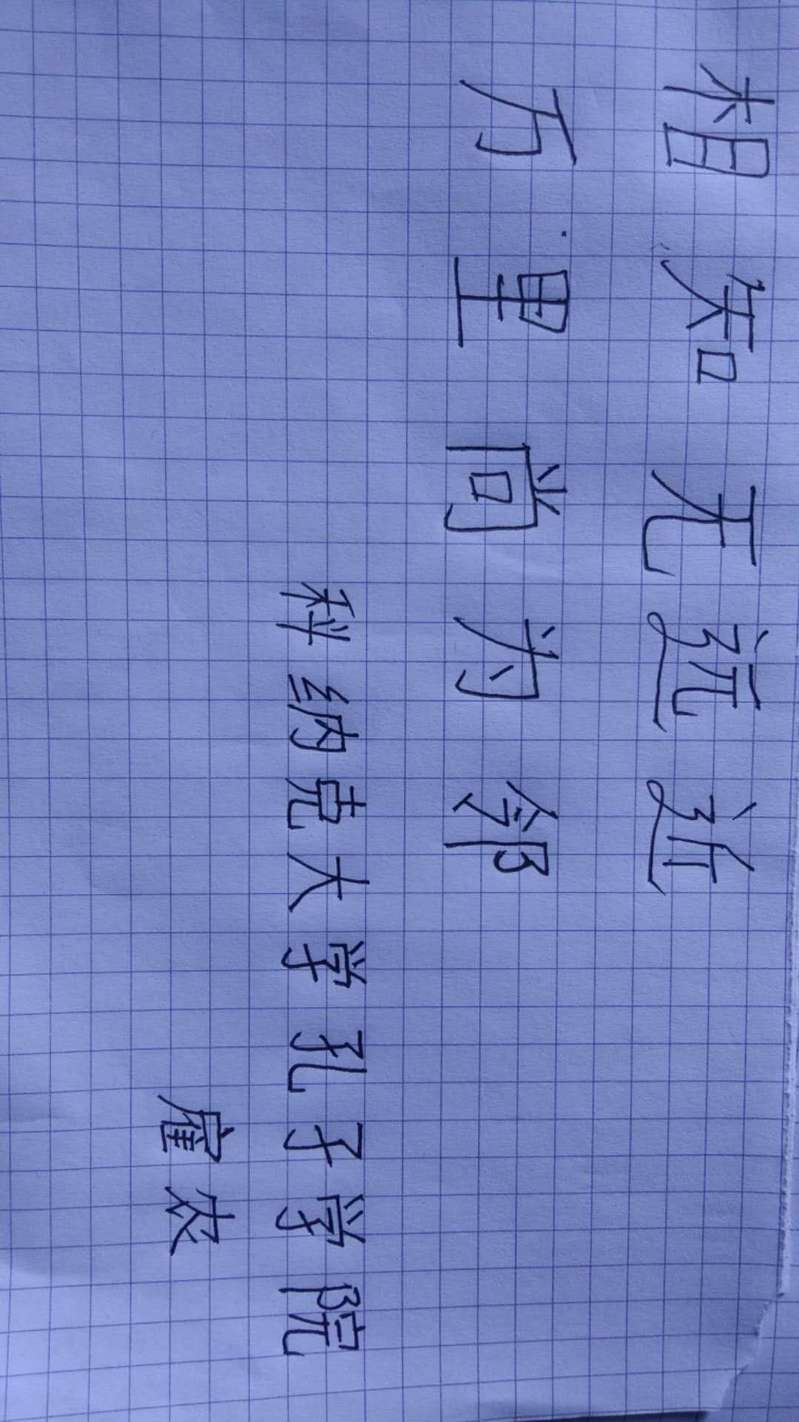 相知无远近
万里尚为邻
科纳克大学孔子学院